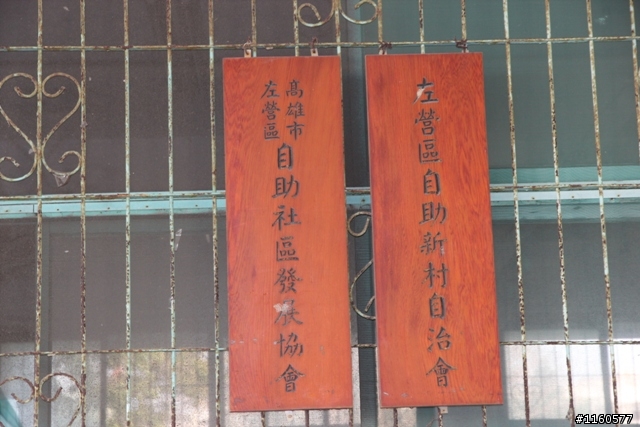 高雄市
左營區
自助社區發展協會
左營區自助新村自治會
#1160577